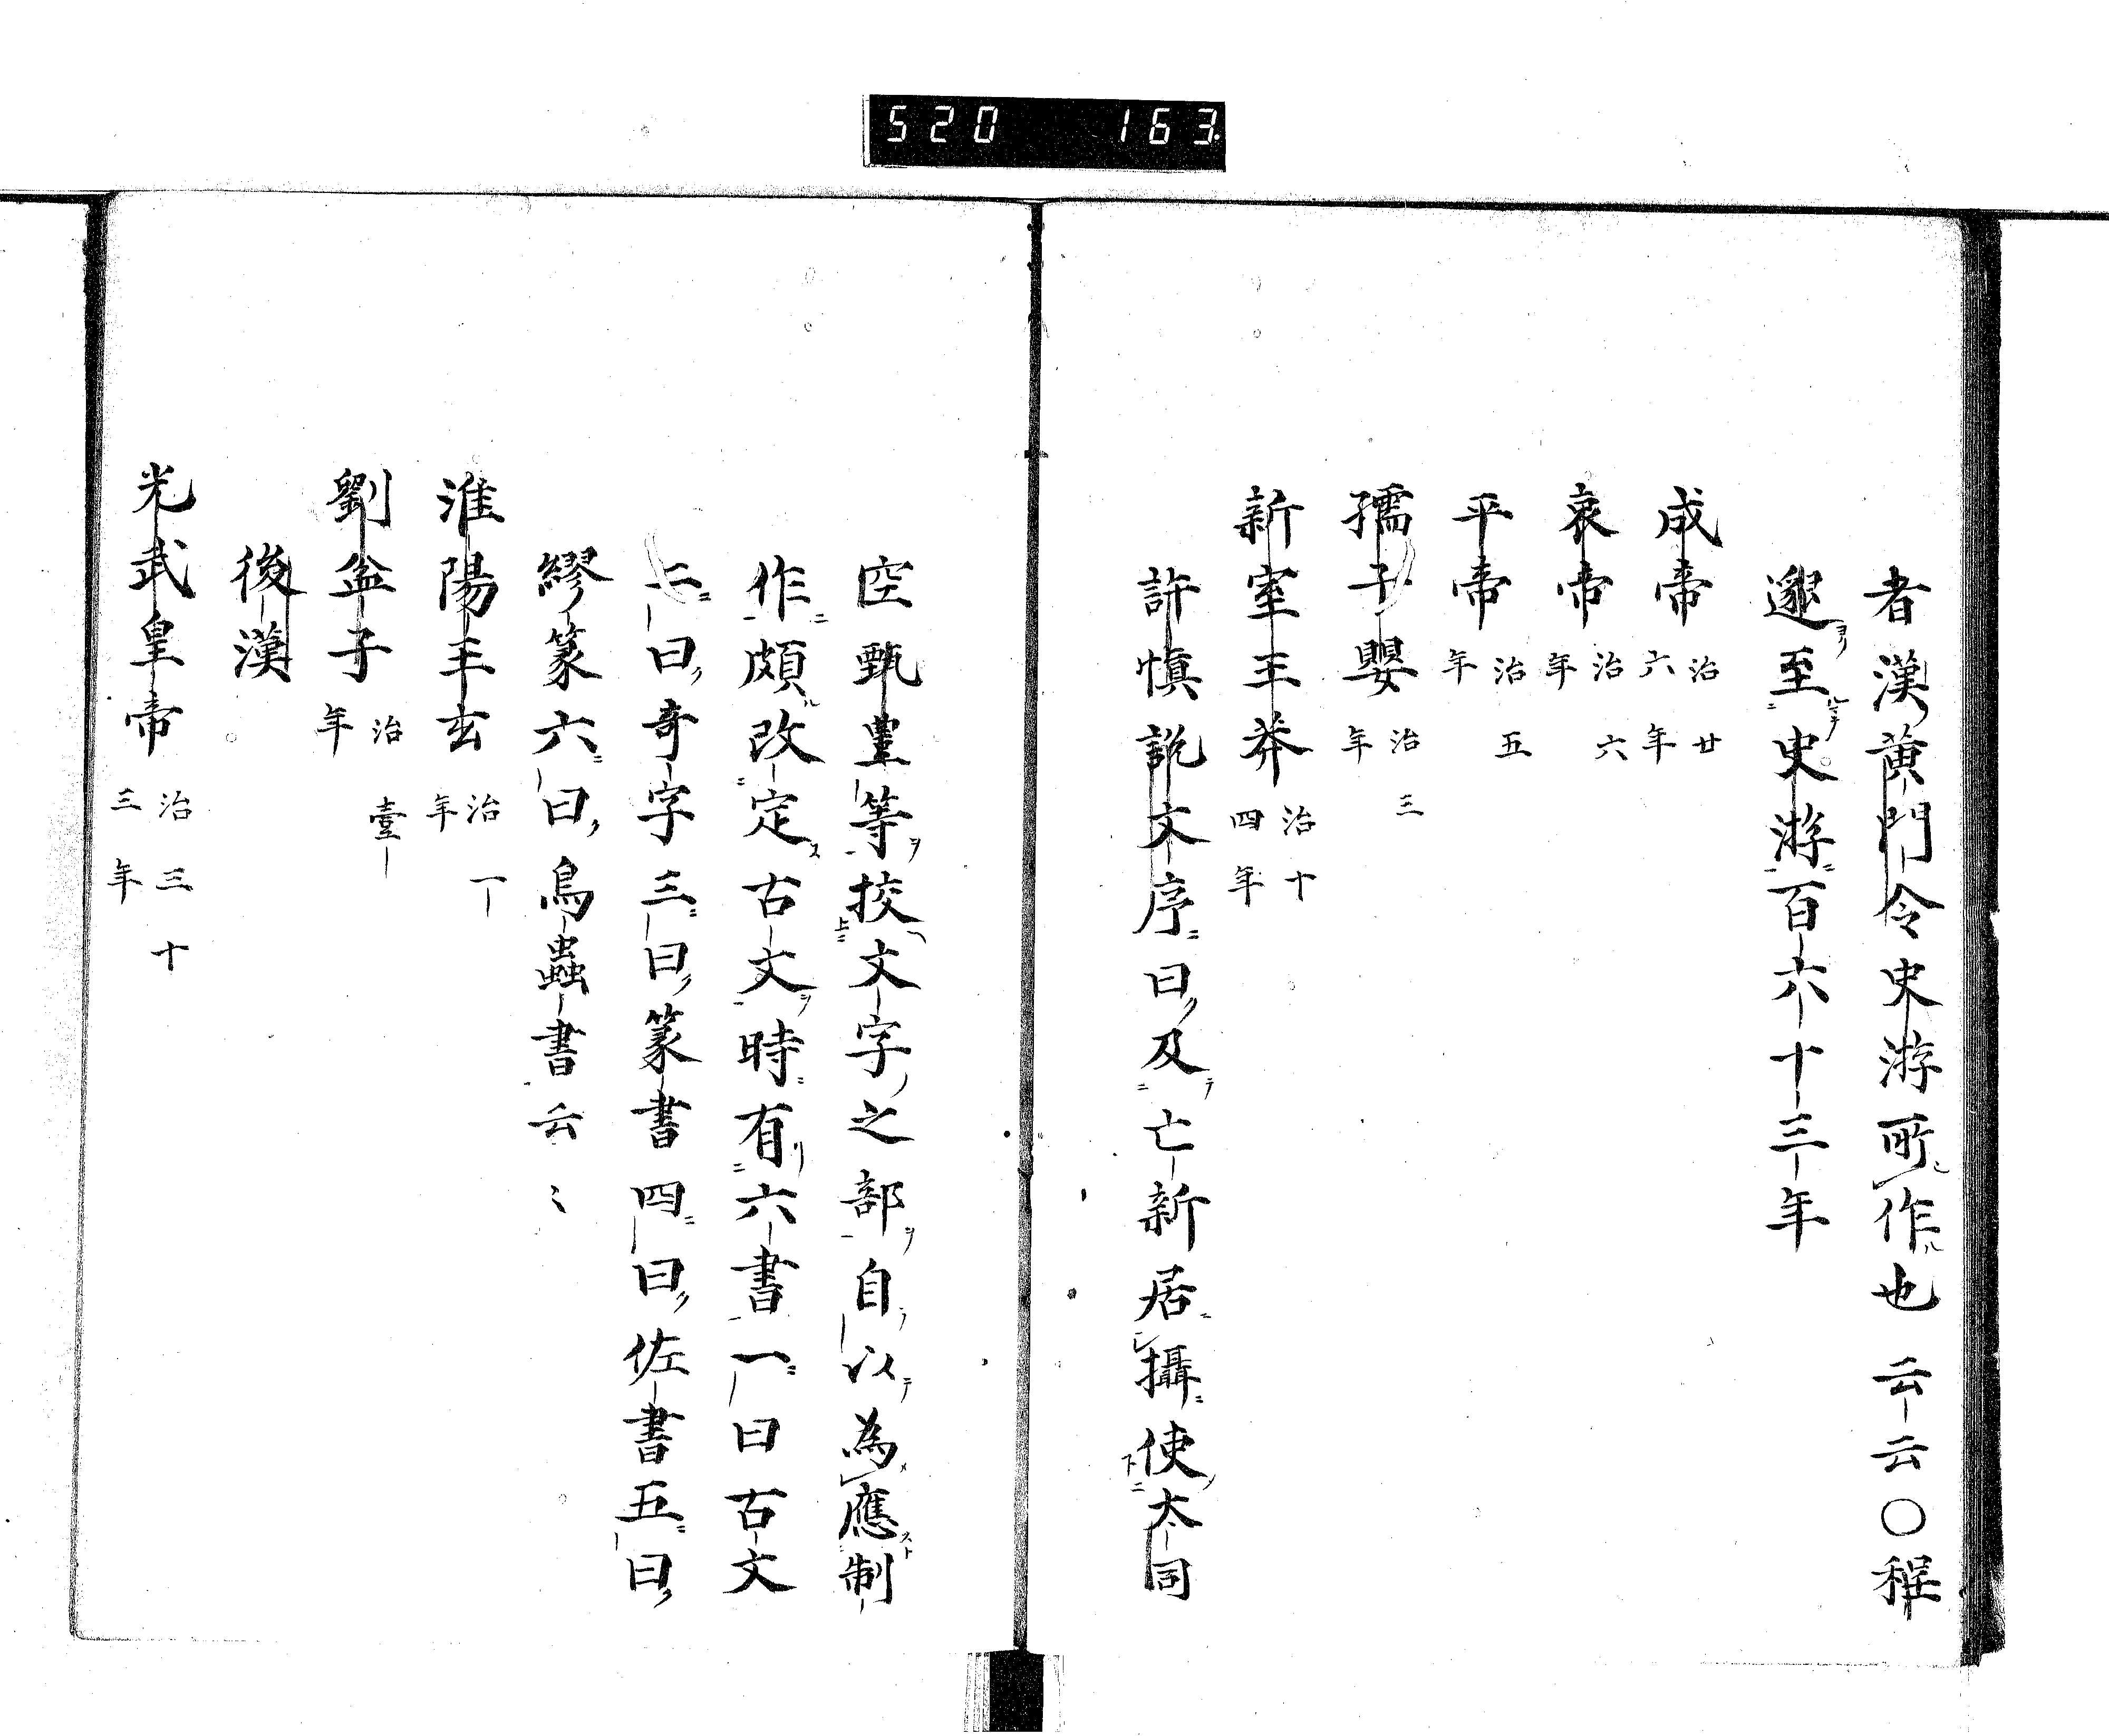 520 163
者漢黄門令史游所作也云云○程
邈至史游百六十三年
成帝治廿六年
哀帝治六年
平帝治五年
孺子嬰治三年
新室王莽治十四年
許慎説文序曰及亡新居攝使大司
空甄豊等挍文字之部自以為應制
作頗改定古文時有六書一曰古文
二曰奇字三曰篆書四曰佐書五曰
繆篆六曰鳥蟲書云〻
淮陽王玄治一年
劉盆子治壹年
後漢
光武皇帝治三十三年